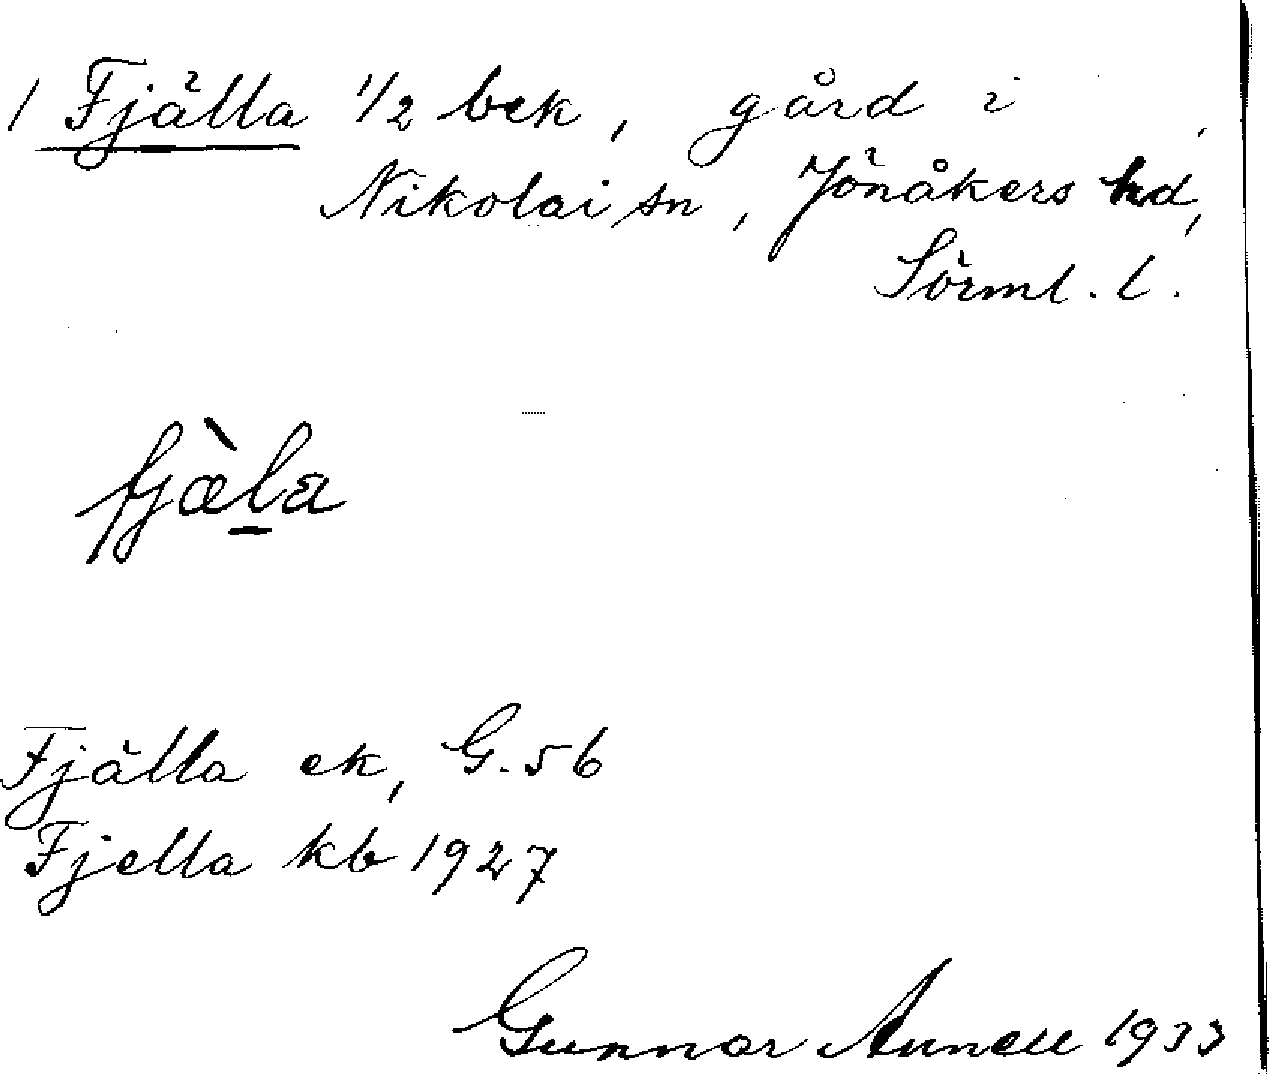 1 Fjälla 1/2 bek, gård i
Nikolai sn, Jönåkers hd,
Sörml. l.
fjæ̀la
Fjälla ek, G. 56
Fjella kb 1927
Gunnar Annell 1933